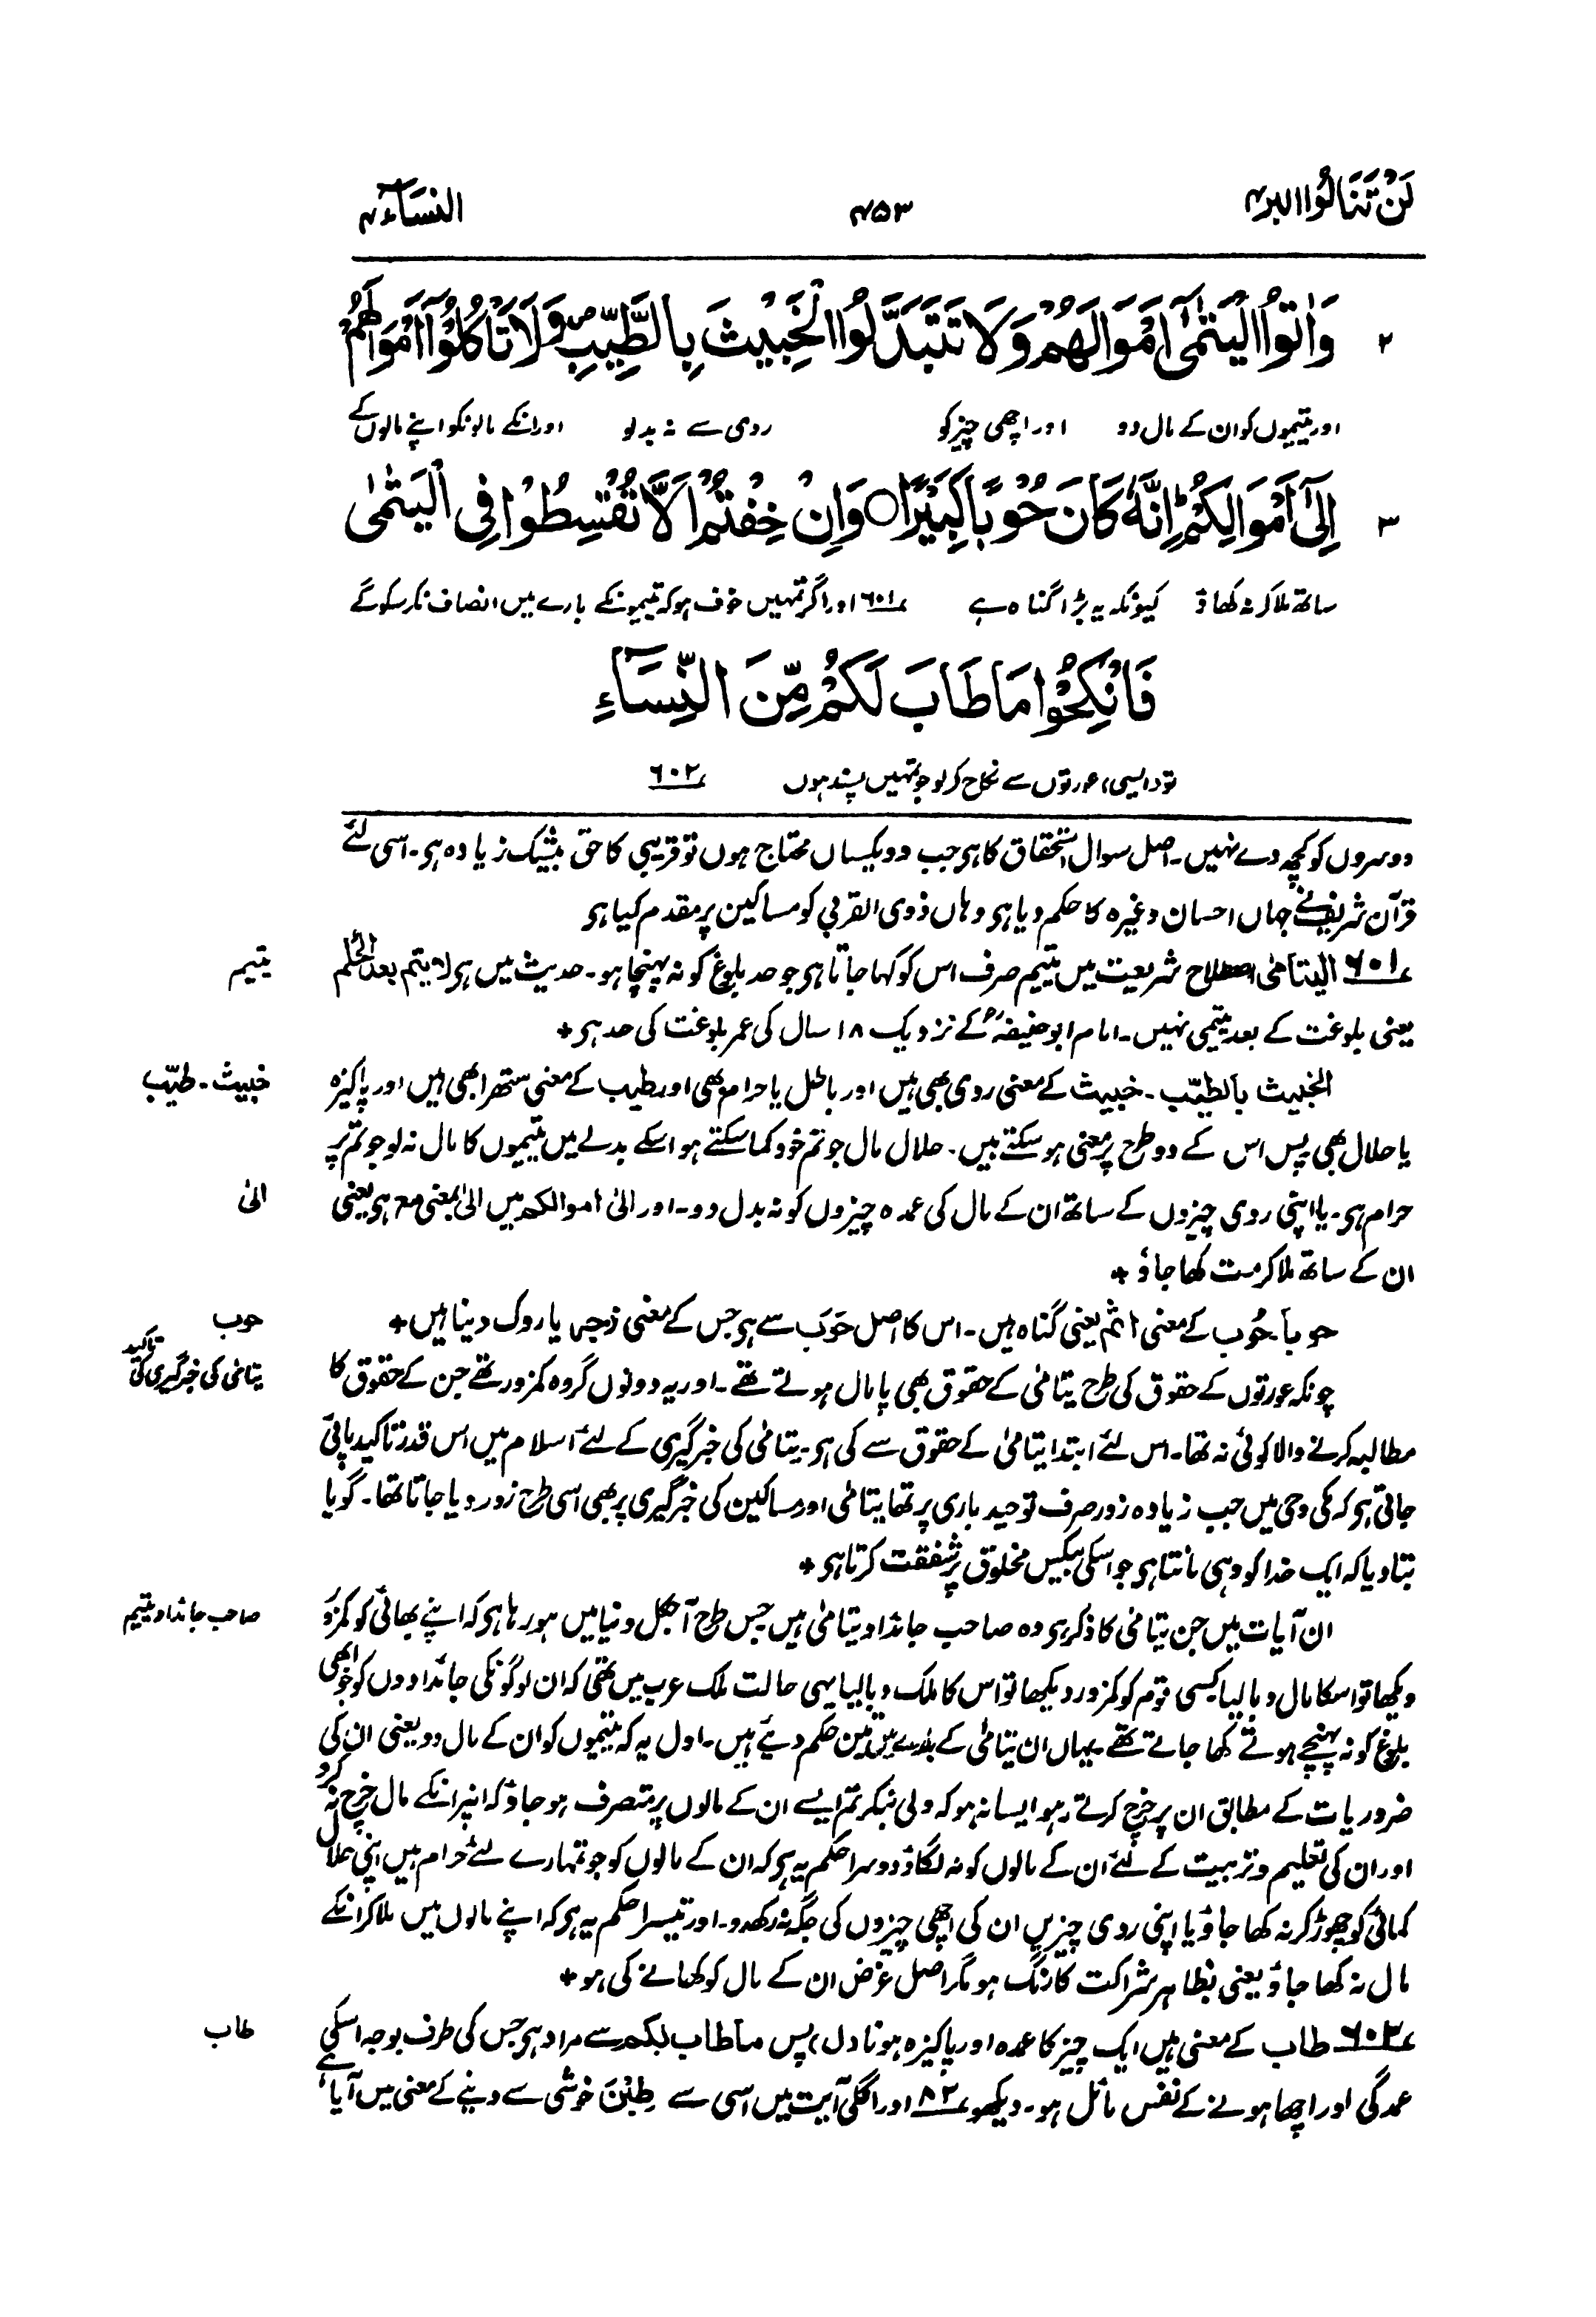 لَنْ تَنَالُوا البر ۴
۴۵۳
النساء ۴
۲ وَاٰتُوا الْيَتٰمٰٓى اَمْوَالَهُمْ وَلَا تَتَبَدَّلُوا الْخَبِيْثَ بِالطَّيِّبِ ص وَلَا تَاْكُلُوْٓا اَمْوَالَهُمْ
اور یتیموں کو ان کے مال دو اور اچھی چیز کو ردی سے نہ بدلو اور انکے مالونکو اپنے مالوں کے
۳ اِلٰٓى اَمْوَالِكُمْ ط اِنَّهٗ كَانَ حُوْبًا كَبِيْرًا ○ وَاِنْ خِفْتُمْ اَلَّا تُقْسِطُوْا فِى الْيَتٰمٰى
ساتھ ملا کر نہ کھاؤ کیونکہ یہ بڑا گناہ ہے ۶۰۱ اور اگر تمہیں خوف ہو کہ یتیمونکے بارے میں انصاف نکرسکوگے
فَانْكِحُوْا مَا طَابَ لَكُمْ مِّنَ النِّسَآءِ
تو (ایسی) عورتوں سے نکاح کر لو جو تمہیں پسند ہوں ۶۰۲
دوسروں کو کچھ دے نہیں۔ اصل سوال استحقاق کا ہی جب دو یکساں محتاج ہوں تو قریبی کا حق بیشک زیادہ ہی۔ اسی لئے
قرآن شریف نے جہاں احسان وغیرہ کا حکم دیا ہی وہاں ذوی القربی کو مساکین پر مقدم کیا ہی
۶۰۱ الیتامٰی اصطلاح شریعت میں یتیم صرف اس کو کہا جاتا ہی جو حد بلوغ کو نہ پہنچا ہو۔ حدیث میں ہی لا یتم بعد الحلم
یتیم
یعنی بلوغت کے بعد یتیمی نہیں۔ امام ابوحنیفہؒ کے نزدیک ۱۸ سال کی عمر بلوغت کی حد ہی +
الخبیث بالطیّب۔ خبیث کے معنی ردی بھی ہیں اور باطل یا حرام بھی اور طیب کے معنی ستھرا بھی ہیں اور پاکیزہ
خبیث۔ طیّب
یا حلال بھی پس اس کے دو طرح پر معنی ہو سکتے ہیں۔ حلال مال جو تم خود کما سکتے ہو اسکے بدلے میں یتیموں کا مال نہ لو جو تم پر
حرام ہی۔ یا اپنی ردی چیزوں کے ساتھ ان کے مال کی عمدہ چیزوں کو نہ بدل دو۔ اور الیٰ اموالکم میں الیٰ بمعنی مع ہی یعنی
الیٰ
ان کے ساتھ ملا کر مت کھا جاؤ +
حوبا۔ حُوب کے معنی اثم یعنی گناہ ہیں۔ اس کا اصل حَوب سے ہی جس کے معنی زجر یا روک دینا ہیں +
حوب
چونکہ عورتوں کے حقوق کی طرح یتامٰی کے حقوق بھی پامال ہوتے تھے۔ اور یہ دونوں گروہ کمزور تھے جن کے حقوق کا
یتامٰی کی خبرگیری کی تاکید
مطالبہ کرنے والا کوئی نہ تھا۔ اس لئے ابتدا یتامٰی کے حقوق سے کی ہی۔ یتامٰی کی خبرگیری کے لئے اسلام میں اس قدر تاکید پائی
جاتی ہی کہ مکی وحی میں جب زیادہ زور صرف توحید باری پر تھا یتامٰی اور مساکین کی خبرگیری پر بھی اسی طرح زور دیا جاتا تھا۔ گویا
بتا دیا کہ ایک خدا کو وہی مانتا ہی جو اسکی بیکس مخلوق پر شفقت کرتا ہی +
ان آیات میں جن یتامٰی کا ذکر ہی وہ صاحب جائداد یتامٰی ہیں جس طرح آجکل دنیا میں ہو رہا ہی کہ اپنے بھائی کو کمزور
صاحب جائداد یتیم
دیکھا تو اسکا مال دبا لیا کسی قوم کو کمزور دیکھا تو اس کا ملک دبا لیا یہی حالت ملک عرب میں تھی کہ ان لوگونکی جائدادوں کو جو ابھی
بلوغ کو نہ پہنچے ہوتے کھا جاتے تھے۔ یہاں ان یتامٰی کے بارے میں تین حکم دیئے ہیں۔ اول یہ کہ یتیموں کو ان کے مال دو یعنی ان کی
ضروریات کے مطابق ان پر خرچ کرتے رہو ایسا نہ ہو کہ ولی بنکر تم ایسے ان کے مالوں پر متصرف ہو جاؤ کہ انپر انکے مال خرچ نہ کرو
اور ان کی تعلیم و تربیت کے لئے ان کے مالوں کو نہ لگاؤ دوسرا حکم یہ ہی کہ ان کے مالوں کو جو تمہارے لئے حرام ہیں اپنی حلال
کمائی کو چھوڑ کر نہ کھا جاؤ یا اپنی ردی چیزیں ان کی اچھی چیزوں کی جگہ نہ رکھدو۔ اور تیسرا حکم یہ ہی کہ اپنے مالوں میں ملا کر انکے
مال نہ کھا جاؤ یعنی بظاہر شراکت کا رنگ ہو مگر اصل غرض ان کے مال کو کھانے کی ہو +
۶۰۲ طاب کے معنی ہیں ایک چیز کا عمدہ اور پاکیزہ ہونا (ل) پس ما طاب لکم سے مراد ہی جس کی طرف بوجہ اسکی
طاب
عمدگی اور اچھا ہونے کے نفس مائل ہو۔ دیکھو ۸۲ اور اگلی آیت میں اسی سے طِبْنَ خوشی سے دینے کے معنی میں آیا ہے